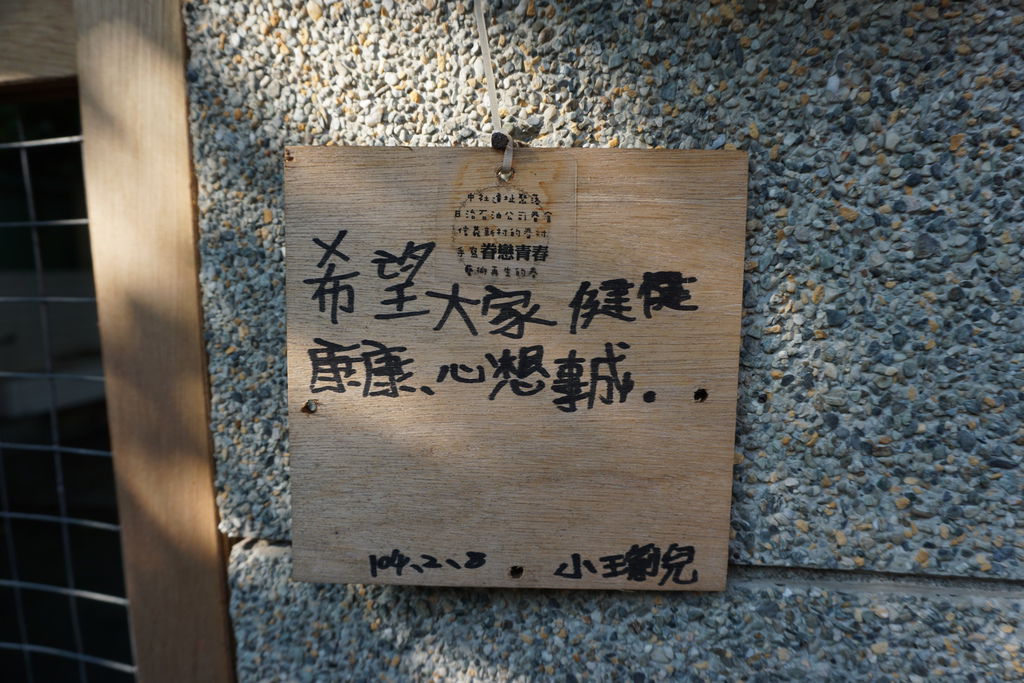 中社遺址聚落
日治石油公司眷舍
信義新村的眷村
手寫眷戀青春
藝術再生的春
希望大家健健
康康、心想事誠.
104、2、8
小瑜兒